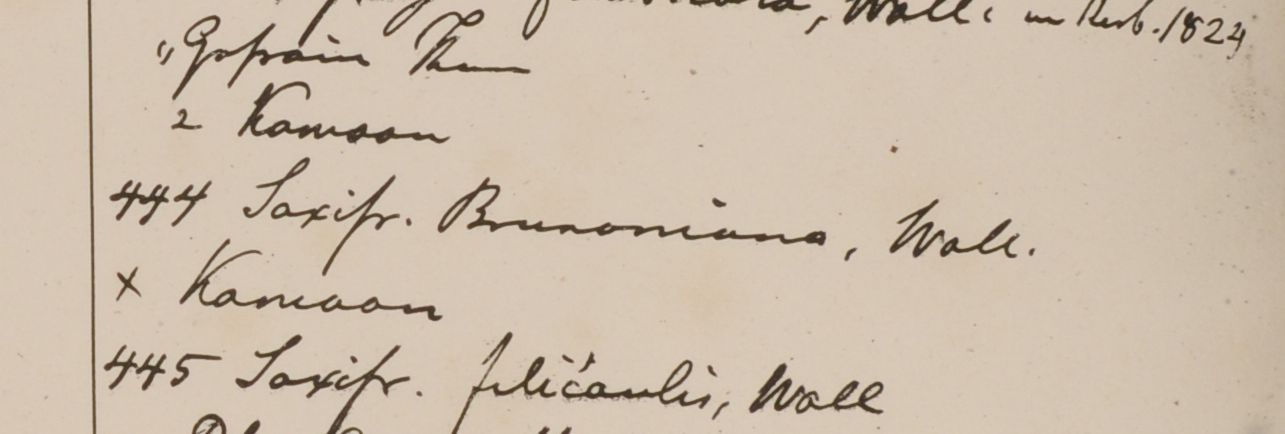 , Wall. in Herb. 1824
" Gosain Than
2 Kamaon
444 Saxifr. Brunoniana, Wall.
x Kamaon
445 Saxifr. filicaulis, Wall